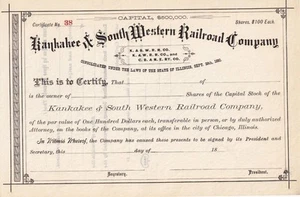 CAPITAL, $500,000.
Certificate No. 38
Shares, $100 Each.
Kankakee & South Western Railroad Company
CONSOLIDATED UNDER THE LAWS OF THE STATE OF ILLINOIS,
This is to Certify, That of
is the owner of Shares of the Capital Stock of the
Kankakee & South Western Railroad Company,
of the par value of One Hundred Dollars each, transferable in person, or by duly authorized
Attorney, on the books of the Company, at its office in the city of Chicago, Illinois.
In Witness Whereof, the Company has caused these presents to be signed by its President and
Secretary, this day of 18
Secretary. President.